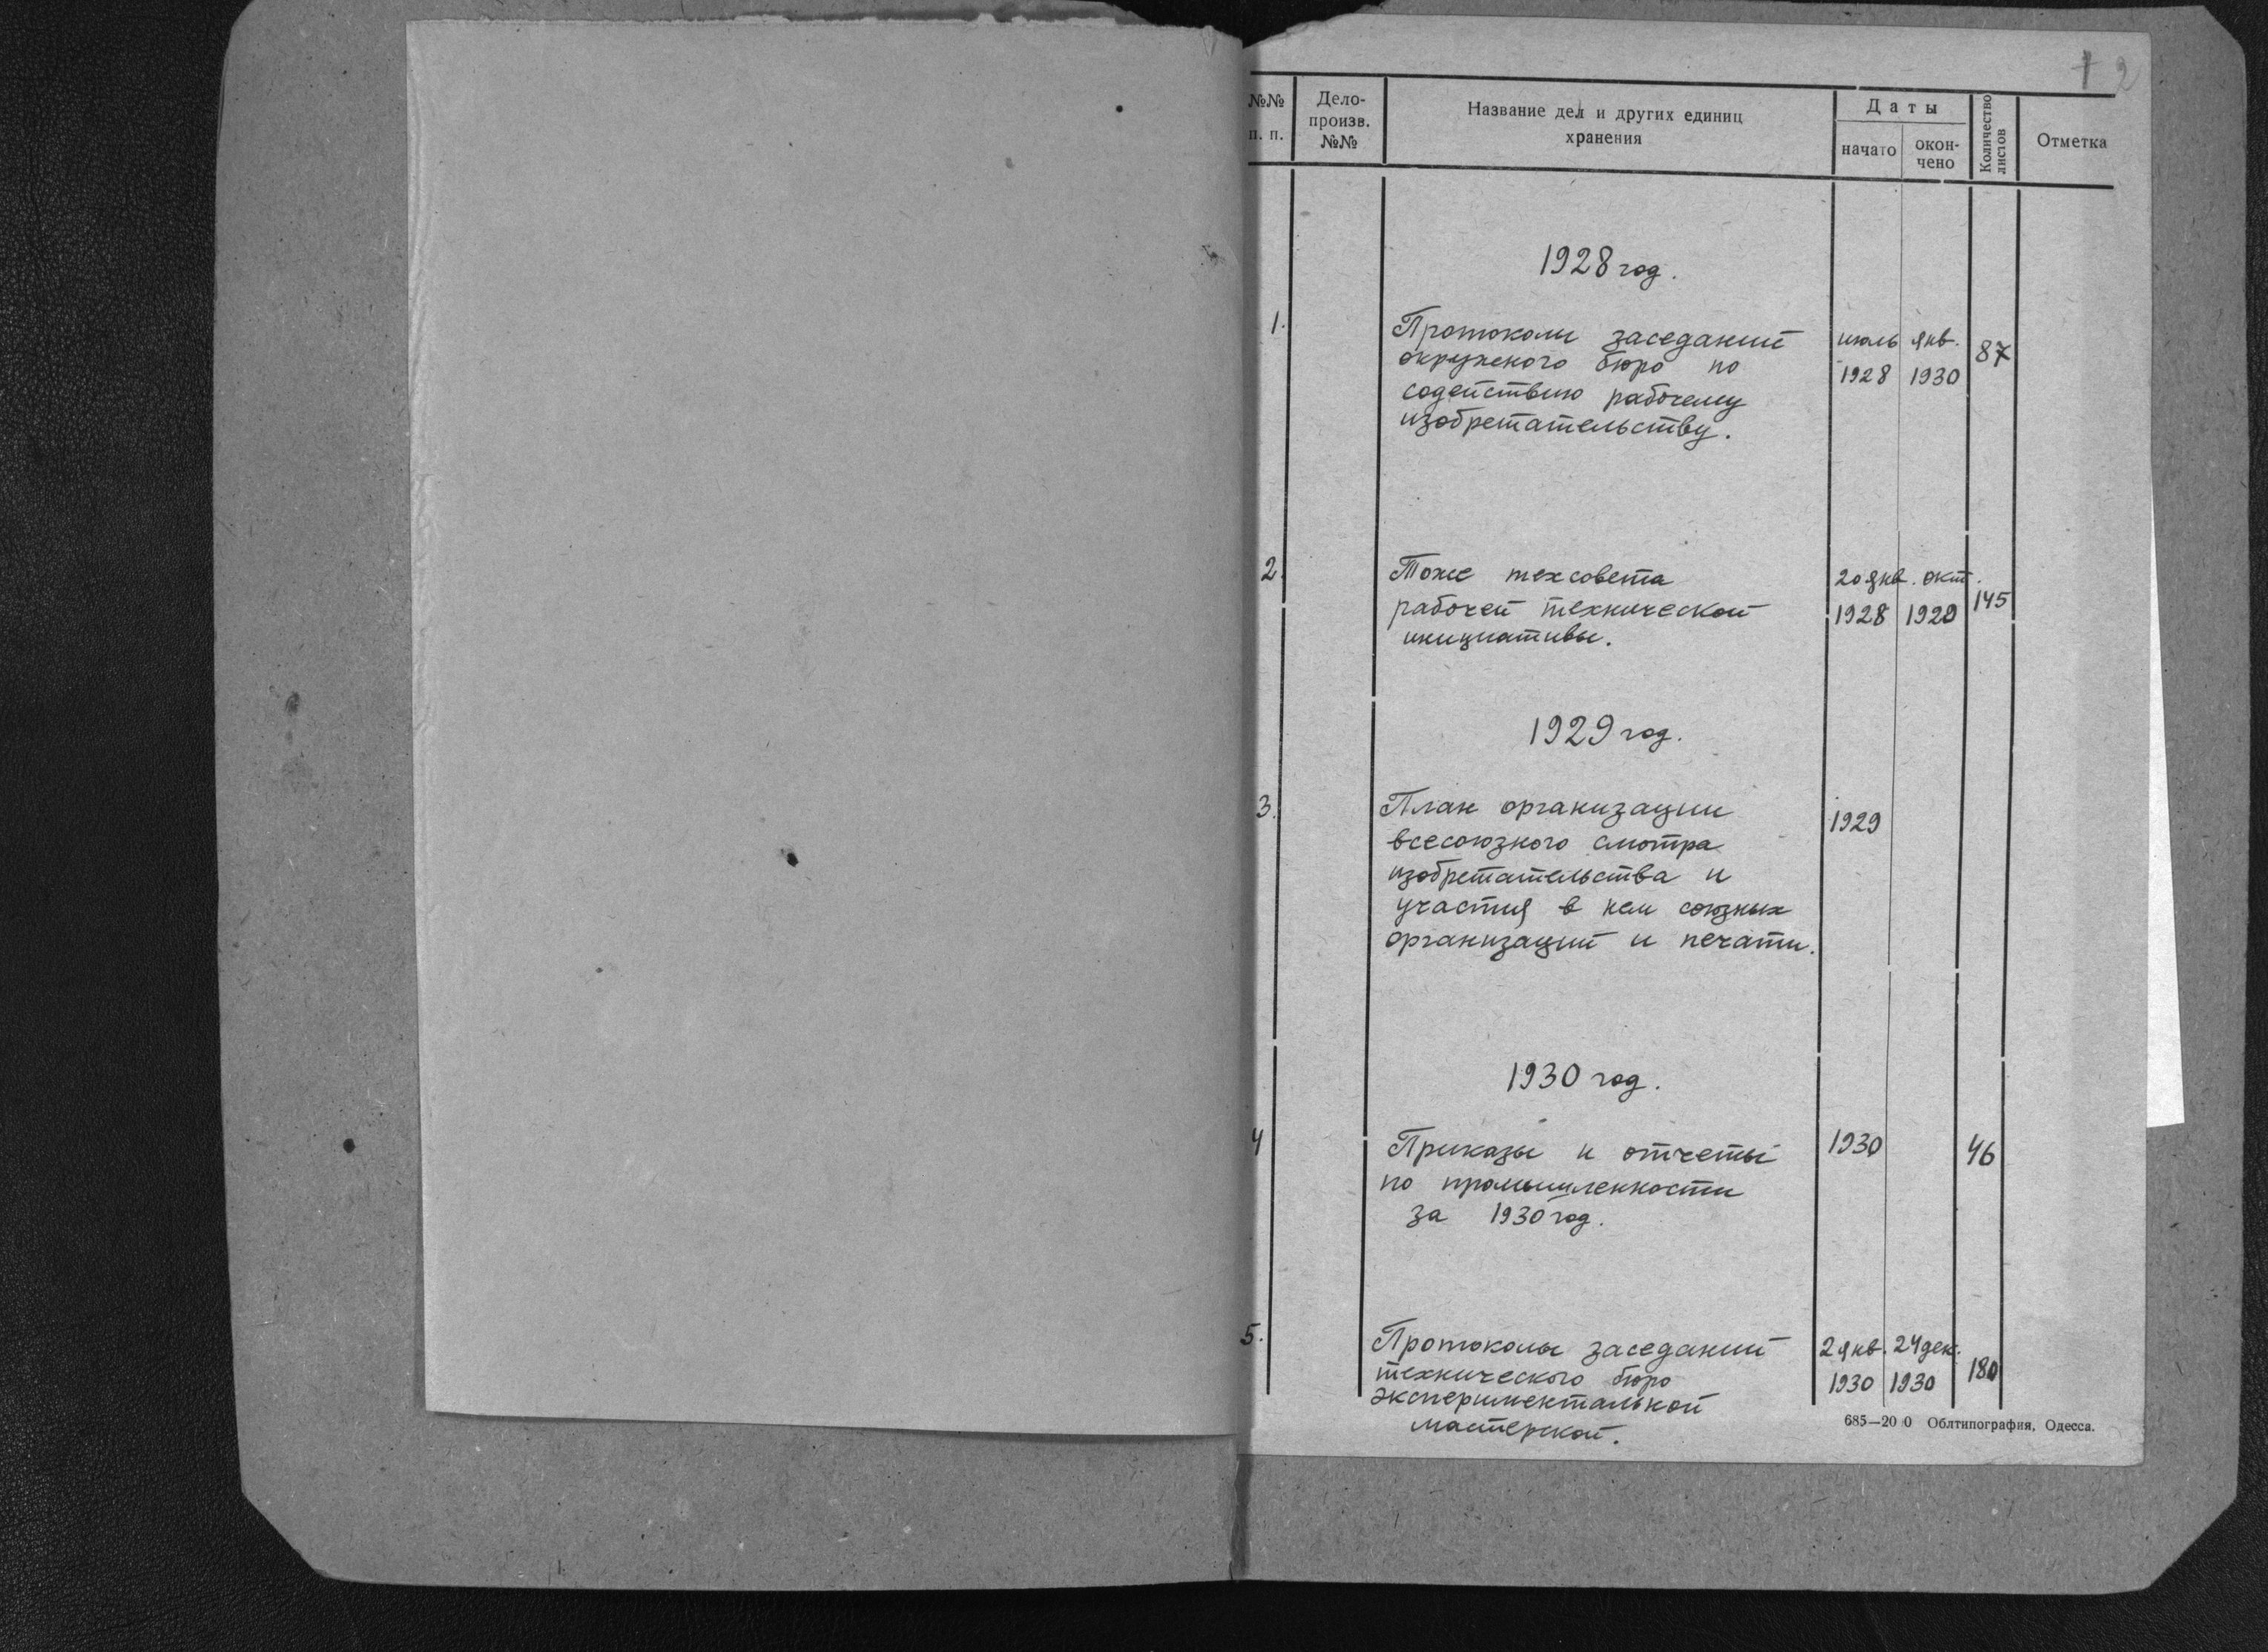 1 2
№№ п. п.
Дело-
произв.
№№
Название дел и других единиц
хранения
Даты
начато
окон-
чено
Количество
листов
Отметка
1928 год.
1.
Протоколы заседаний
окружного бюро по
содействию рабочему
изобретательству.
июль янв.
1928 1930
87
2.
Тоже техсовета
рабочей технической
инициативы.
20 янв. окт.
1928 1929
145
1929 год.
3.
План организации
всесоюзного смотра
изобретательства и
участия в нем союзных
организаций и печати.
1929
1930 год.
4
Приказы и отчеты
по промышленности
за 1930 год.
1930
46
5.
Протоколы заседаний
технического бюро
экспериментальной
мастерской.
2 янв. 24 дек.
1930 1930
180
685—20 0 Облтипография, Одесса.